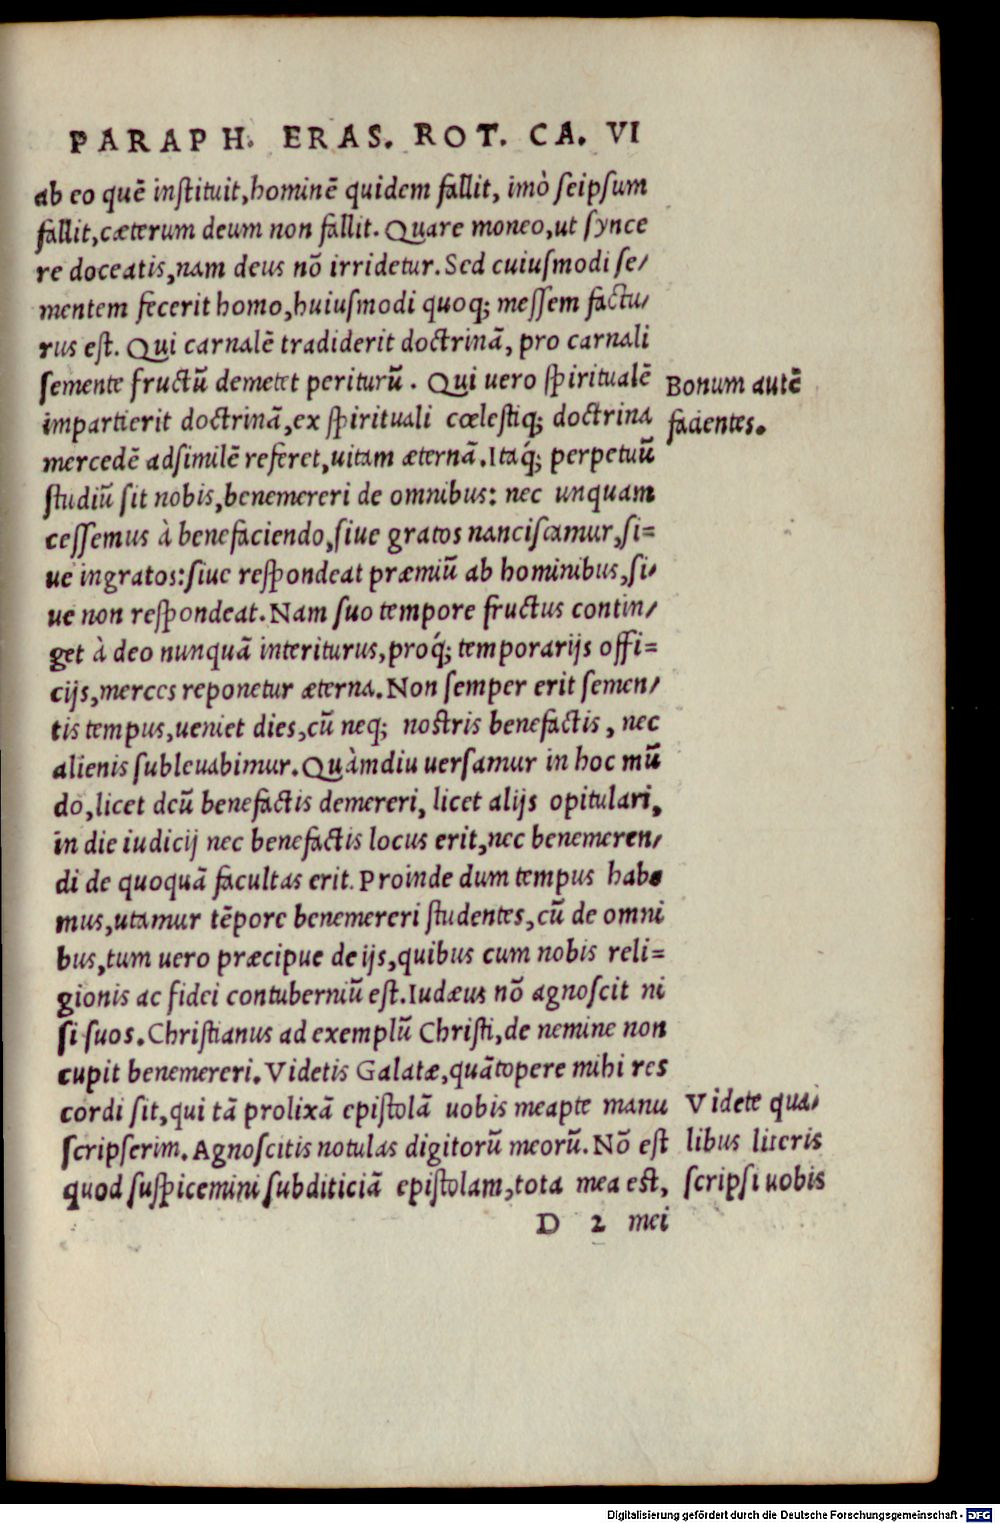 PARAPH. ERAS. ROT. CA. VI
ab eo quẽ instituit, hominẽ quidem fallit, imò seipsum
fallit, cæterum deum non fallit. Quare moneo, ut synce
re doceatis, nam deus nõ irridetur. Sed cuiusmodi se/
mentem fecerit homo, huiusmodi quoq; messem factu/
rus est. Qui carnalẽ tradiderit doctrinã, pro carnali
semente fructũ demetet periturũ. Qui uero spiritualẽ
impartierit doctrinã, ex spirituali cœlestiq; doctrina
mercedẽ adsimilẽ referet, uitam æternã. Itaq́; perpetuũ
studiũ sit nobis, benemereri de omnibus: nec unquam
cessemus à benefaciendo, siue gratos nanciscamur, si=
ue ingratos: siue respondeat præmiũ ab hominibus, si/
ue non respondeat. Nam suo tempore fructus contin/
get à deo nunquã interiturus, proq́; temporarijs offi=
cijs, merces reponetur æterna. Non semper erit semen/
tis tempus, ueniet dies, cũ neq; nostris benefactis, nec
alienis subleuabimur. Quàmdiu uersamur in hoc mũ
do, licet deũ benefactis demereri, licet alijs opitulari,
in die iudicij nec benefactis locus erit, nec benemeren/
di de quoquã facultas erit. Proinde dum tempus habe
mus, utamur tẽpore benemereri studentes, cũ de omni
bus, tum uero præcipue de ijs, quibus cum nobis reli=
gionis ac fidei contuberniũ est. Iudæus nõ agnoscit ni
si suos. Christianus ad exemplũ Christi, de nemine non
cupit benemereri. Videtis Galatæ, quãtopere mihi res
cordi sit, qui tã prolixã epistolã uobis meapte manu
scripserim. Agnoscitis notulas digitorũ meorũ. Nõ est
quod suspicemini subditiciã epistolam, tota mea est,
D 2 mei
Bonum autẽ
facientes.
Videte qua/
libus literis
scripsi uobis
Digitalisierung gefördert durch die Deutsche Forschungsgemeinschaft - DFG